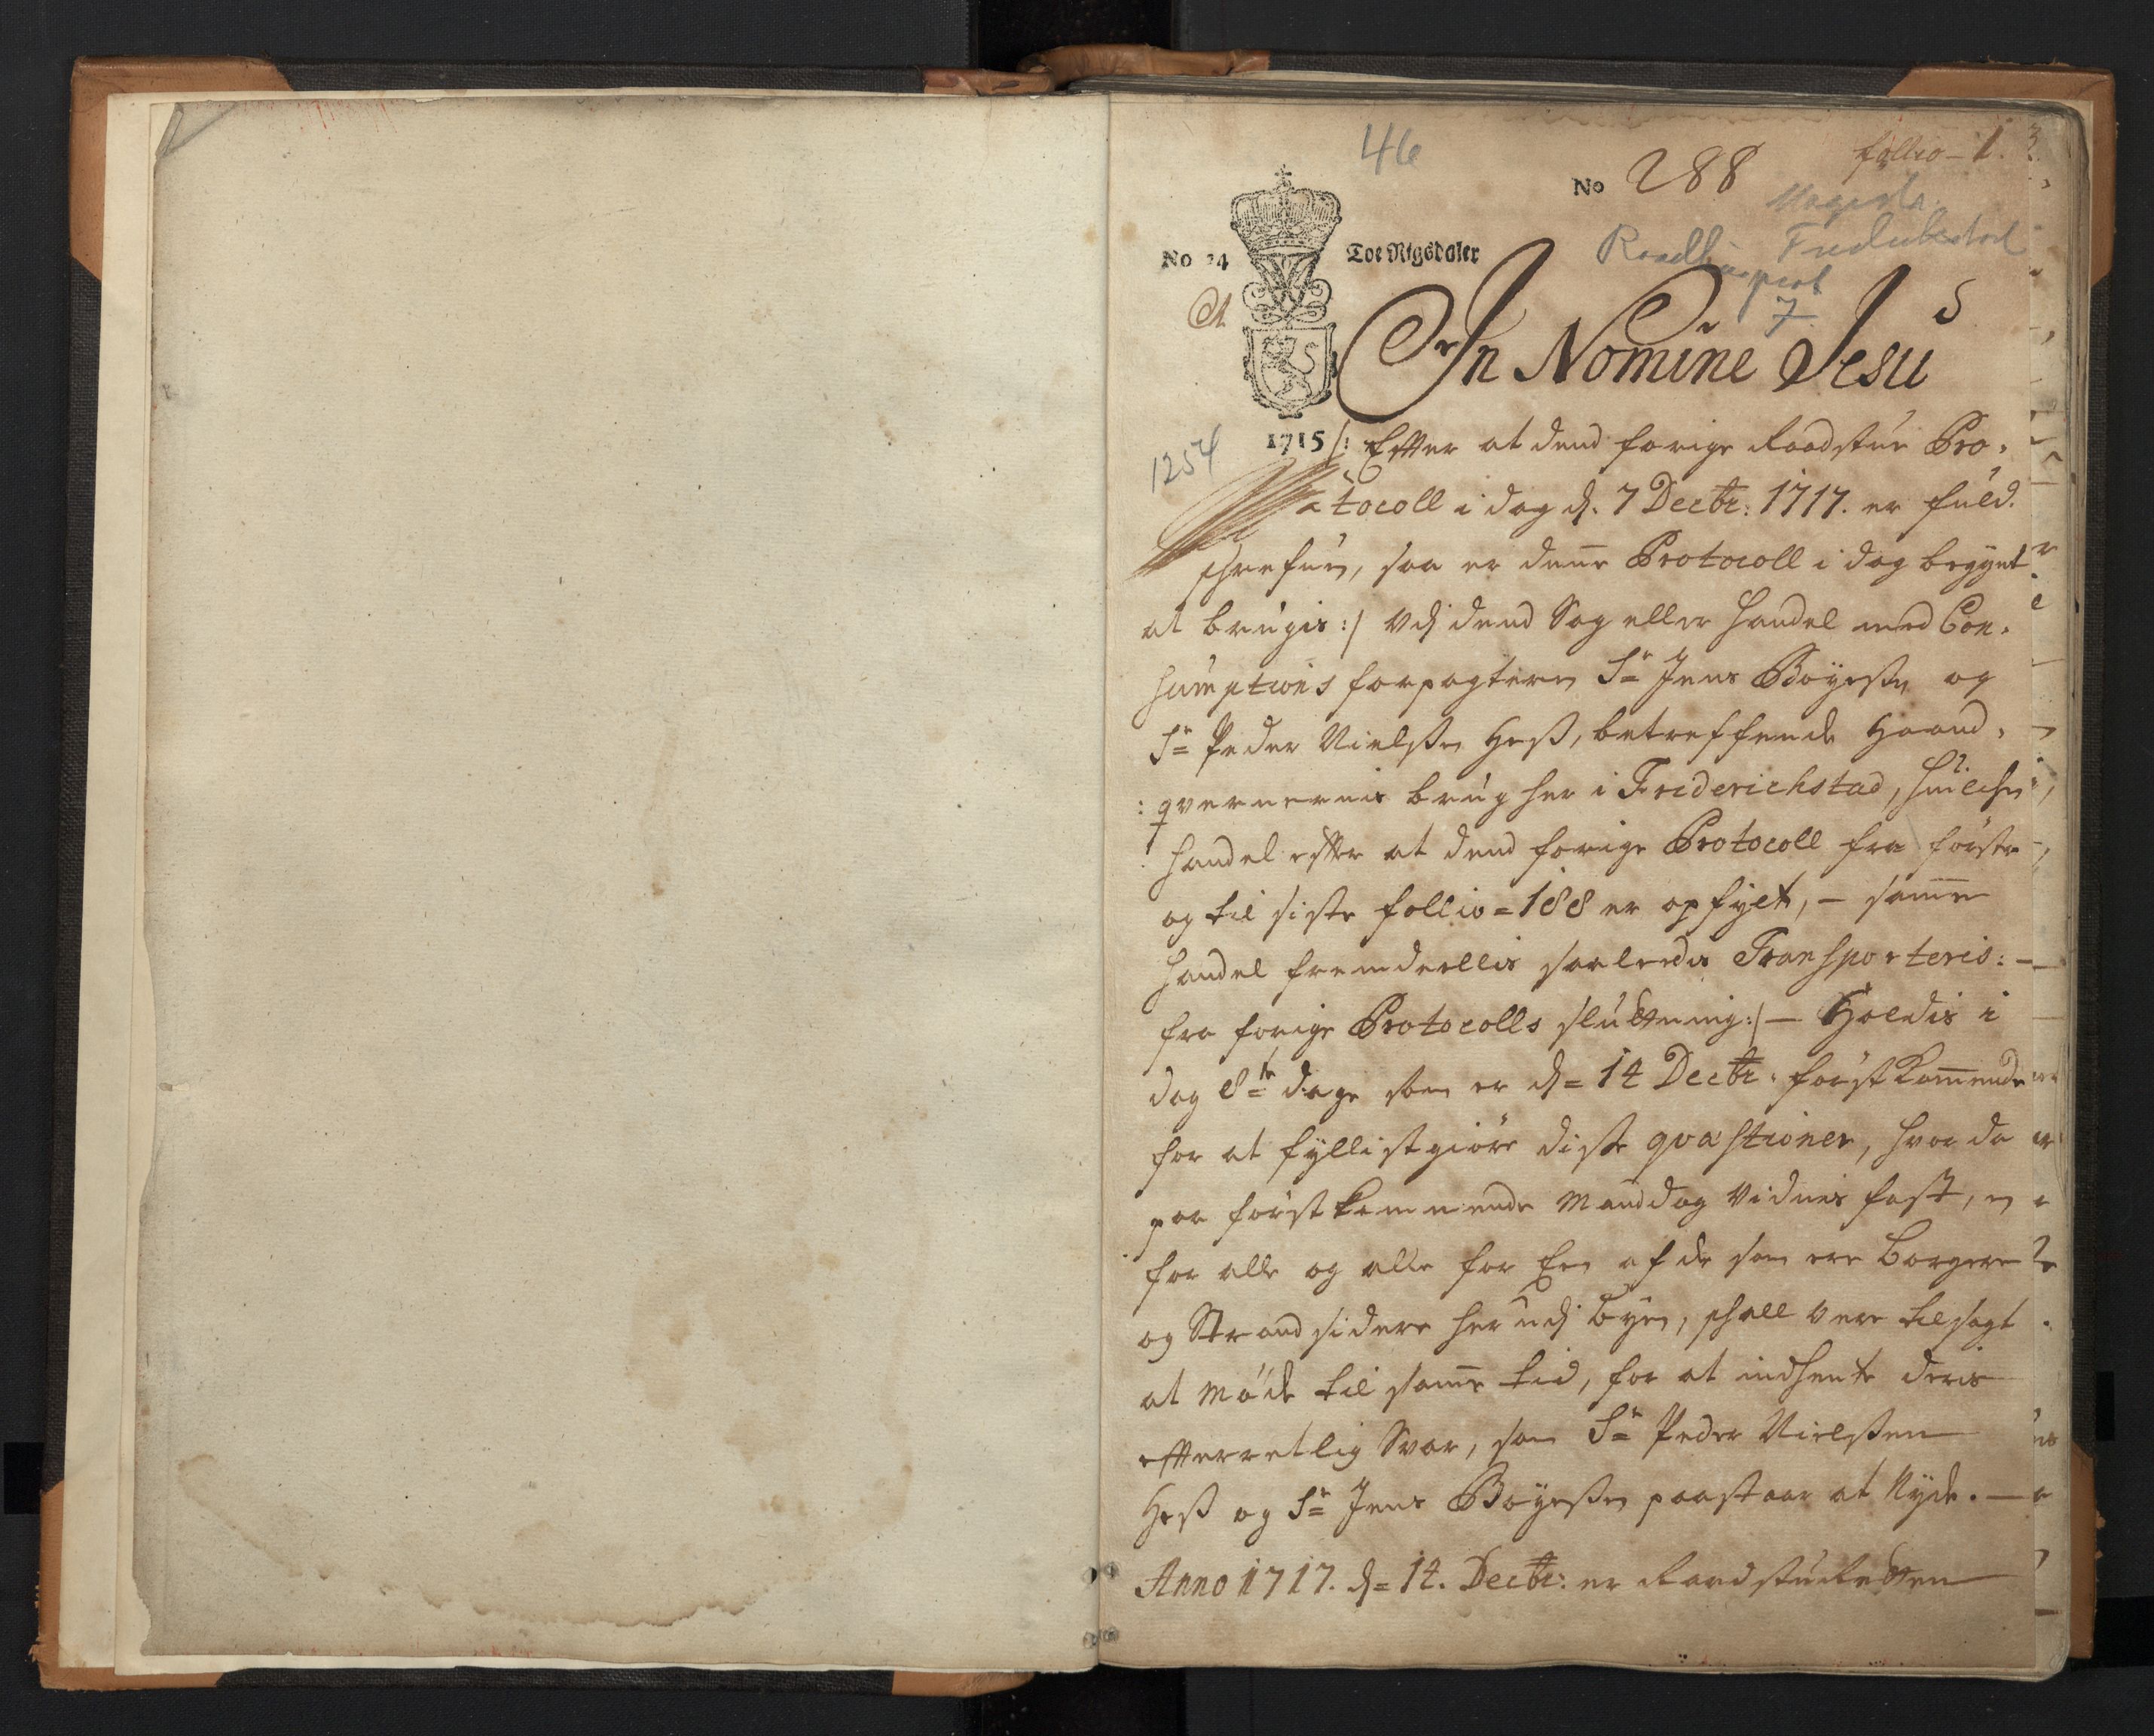 46
No 288
follio - 1.
Magistr.
Fredrikstad
Raadhusprot
7.
No 24
Toe Rigsdaler
In Nomine Jesu
1715
1254
/: Efter at dend forige Raadstue Pro-
tocoll i dag d. 7 Decbr: 1717. er fuld-
schrefuen, saa er denne Protocoll i dag begynt
at brugis :/ Udj dend Sag eller Handel med Con-
sumptions forpagteren Sr Jens Bøyessen og
Sr Peder Nielssen Hess, betreffende Haand-
:qvernernis brug her i Friderichstad, huilchen
Handel efter at dend forige Protocoll fra første
og til siste follio = 188 er opfylt, - samme
Handel fremdeellis saaledis Transporteris: -
fra forige Protocolls sluttning :/ - Holdis i
dag 8te dage som er d = 14 Decbr: førstkommende
for at fyllistgiøre disse qvæstioner, hvor da
paa førstkommende Mandag Vidnis fast, en
for alle og alle for Een af de som ere borgere
og Strandsidere her udj byen, schall vere tilsagt
at møde til samme tid, for at indhente deris
efterretlig Svar, som Sr Peder Nielssen
Hess og Sr Jens Bøyessen paastaar at Nyde. -
Anno 1717. d = 14. Decbr: er Raadstueretten